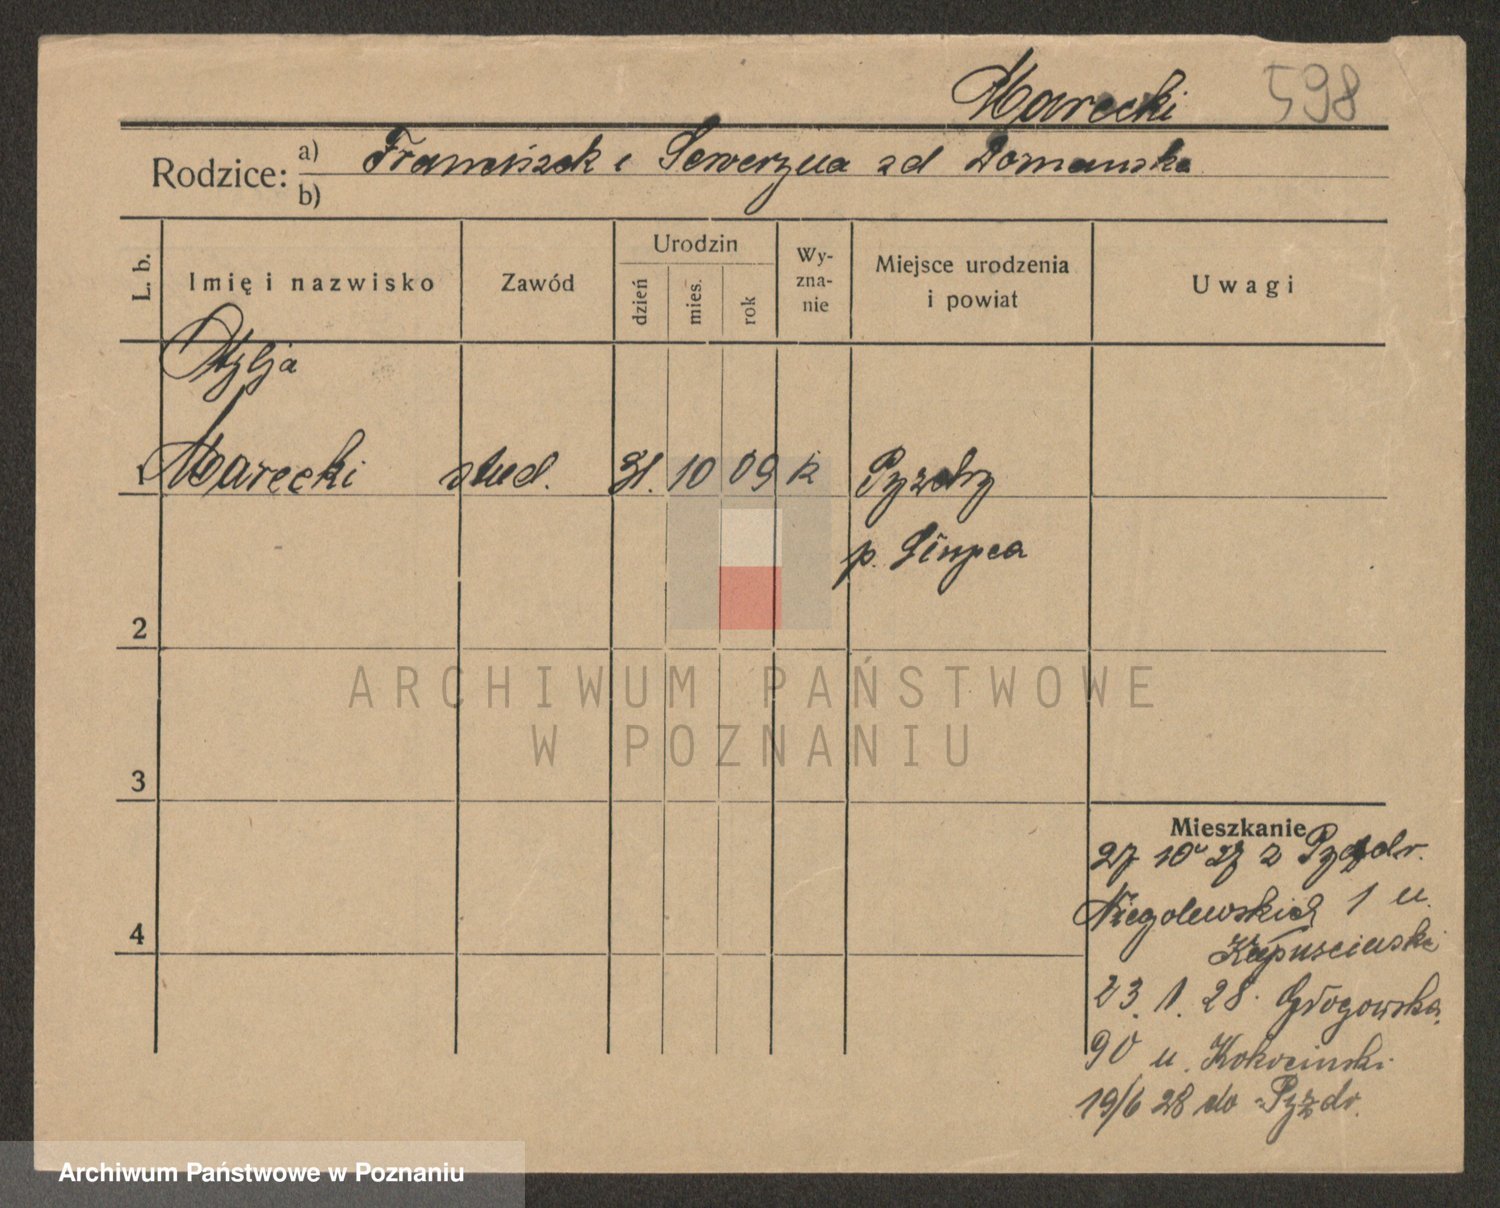 Marecki 598
Rodzice: a) Franciszek i Seweryna zd Domańska
b)
L. b. Imię i nazwisko Zawód Urodzin dzień mies. rok Wy-zna-nie Miejsce urodzenia i powiat Uwagi
1 Marecki stud. 31. 10 09 k Pyzdry
p. Słupca
2
3
4
Mieszkanie
27 10 27 z Pyzdr.
Niegolewskich 1 u.
Kapuscinski
23. 1. 28. Głogowska
90 u. Kokocinski
19/6 28 do Pyzdr.
ARCHIWUM PAŃSTWOWE
W POZNANIU
Archiwum Państwowe w Poznaniu